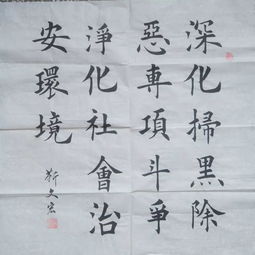 深化掃黑除
惡專項斗爭
淨化社會治
安環境
靳文宏